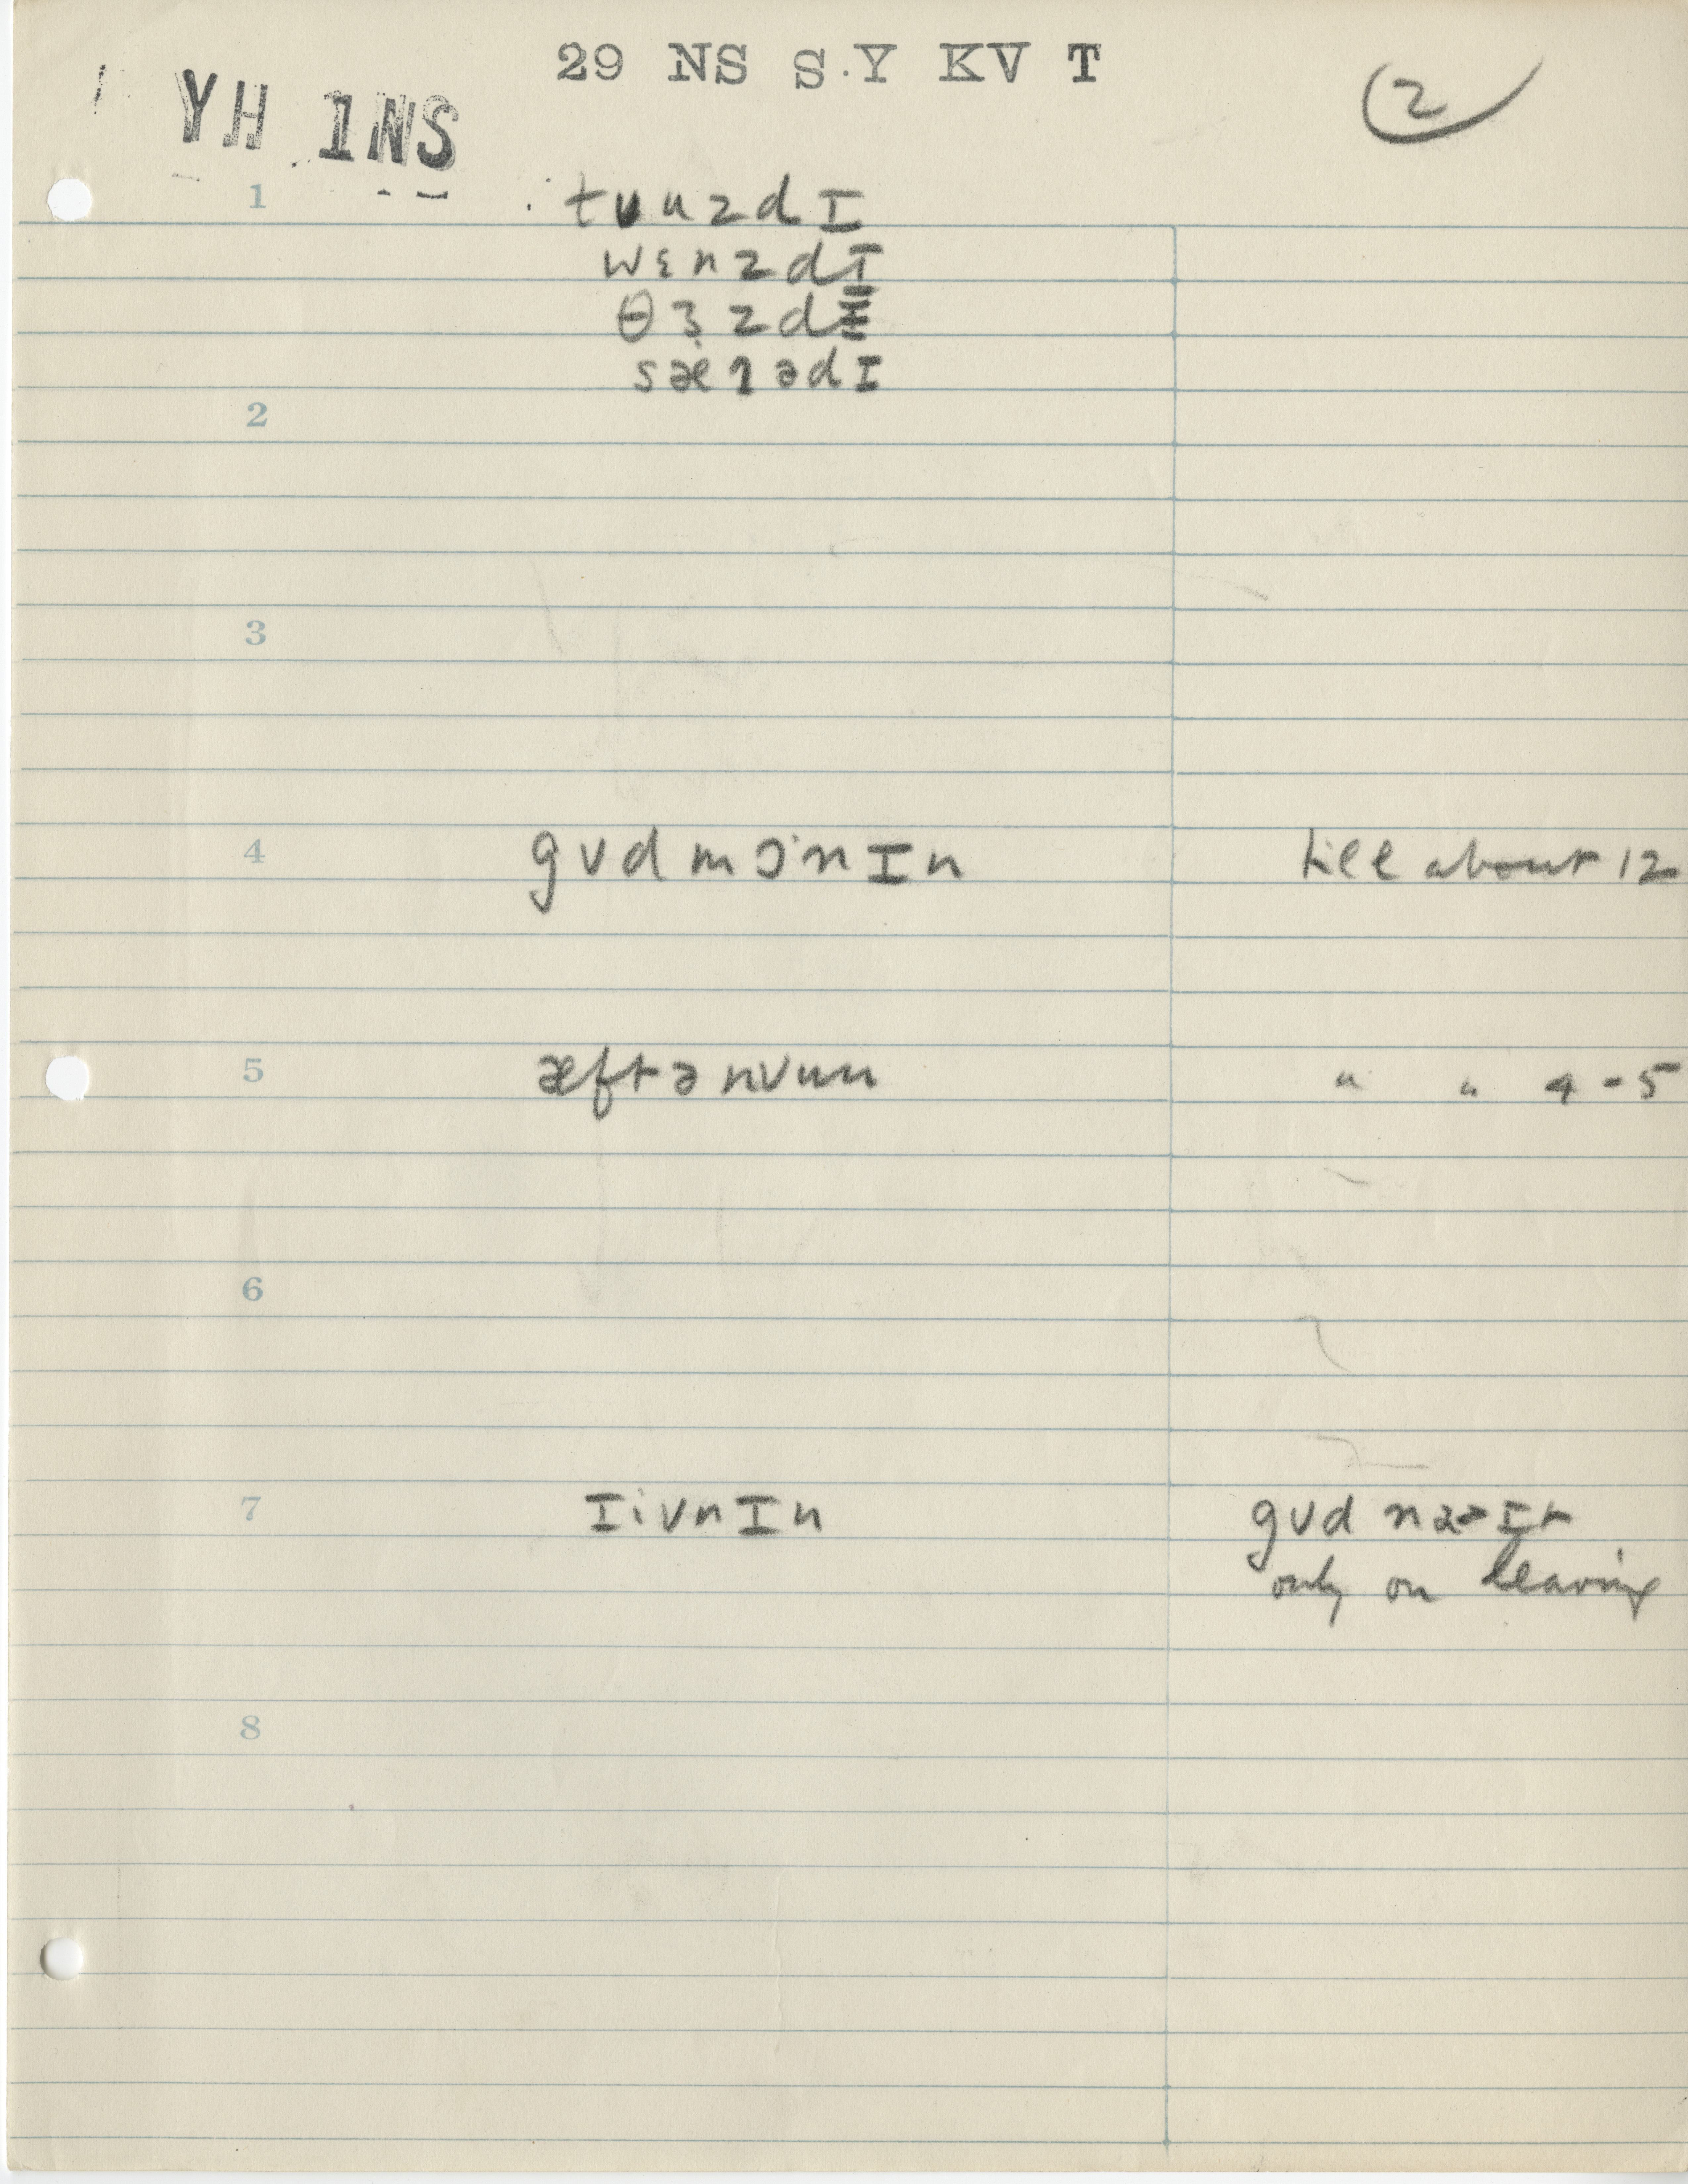 29 NS S Y KV T
2
YH 1NS
1 tʊuzdI
wɛnzdI
θɜzdI
sæɿədI
2
3
4 gʊdmɔ·nIn till about 12
5 æftənʊun " " 4-5
6
7 IivnIn gʊd
only on leaving
8